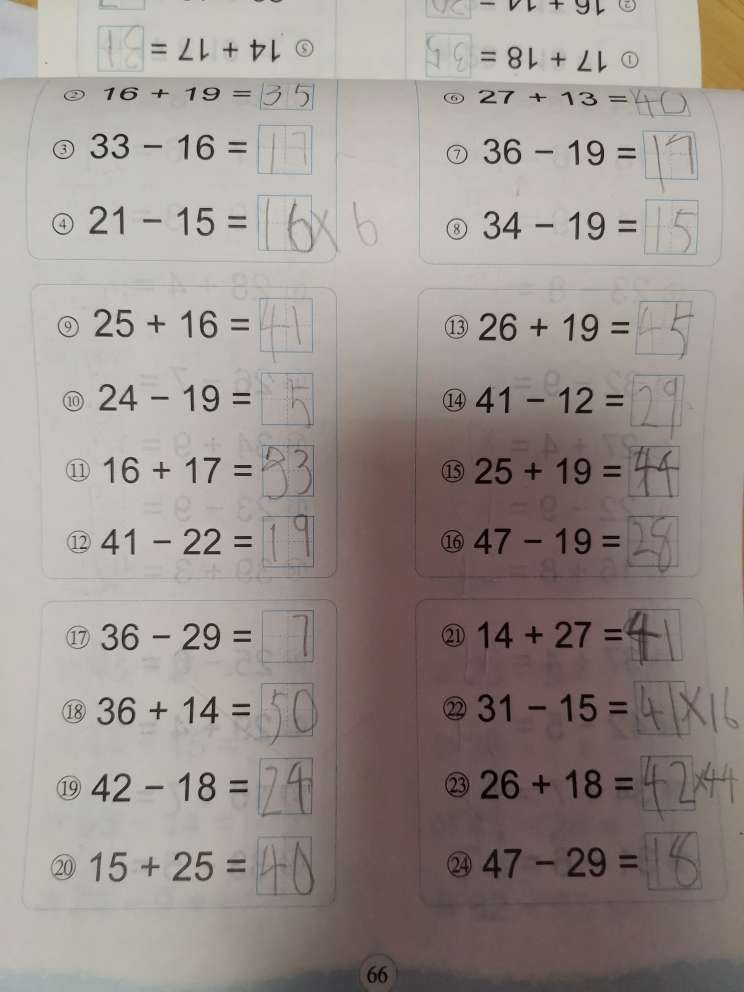 ③ 14 + 17 = 31
① 17 + 18 = 35
② 16 + 19 = 35
③ 33 − 16 = 17
④ 21 − 15 = 16 × 6
⑥ 27 + 13 = 40
⑦ 36 − 19 = 17
⑧ 34 − 19 = 15
⑨ 25 + 16 = 41
⑩ 24 − 19 = 5
⑪ 16 + 17 = 33
⑫ 41 − 22 = 19
⑬ 26 + 19 = 45
⑭ 41 − 12 = 29
⑮ 25 + 19 = 44
⑯ 47 − 19 = 28
⑰ 36 − 29 = 7
⑱ 36 + 14 = 50
⑲ 42 − 18 = 24
⑳ 15 + 25 = 40
㉑ 14 + 27 = 41
㉒ 31 − 15 = 41 × 16
㉓ 26 + 18 = 42 × 44
㉔ 47 − 29 = 18
66